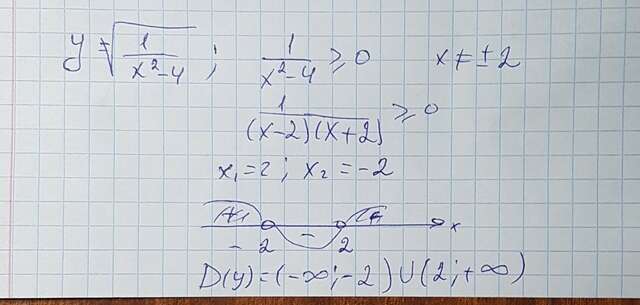 y = √(1/(x²-4)) ; 1/(x²-4) ≥ 0 x ≠ ±2
1/((x-2)(x+2)) ≥ 0
x₁=2 ; x₂ = -2
+ - + x
-2 2
D(y) = (-∞; -2) ∪ (2; +∞)